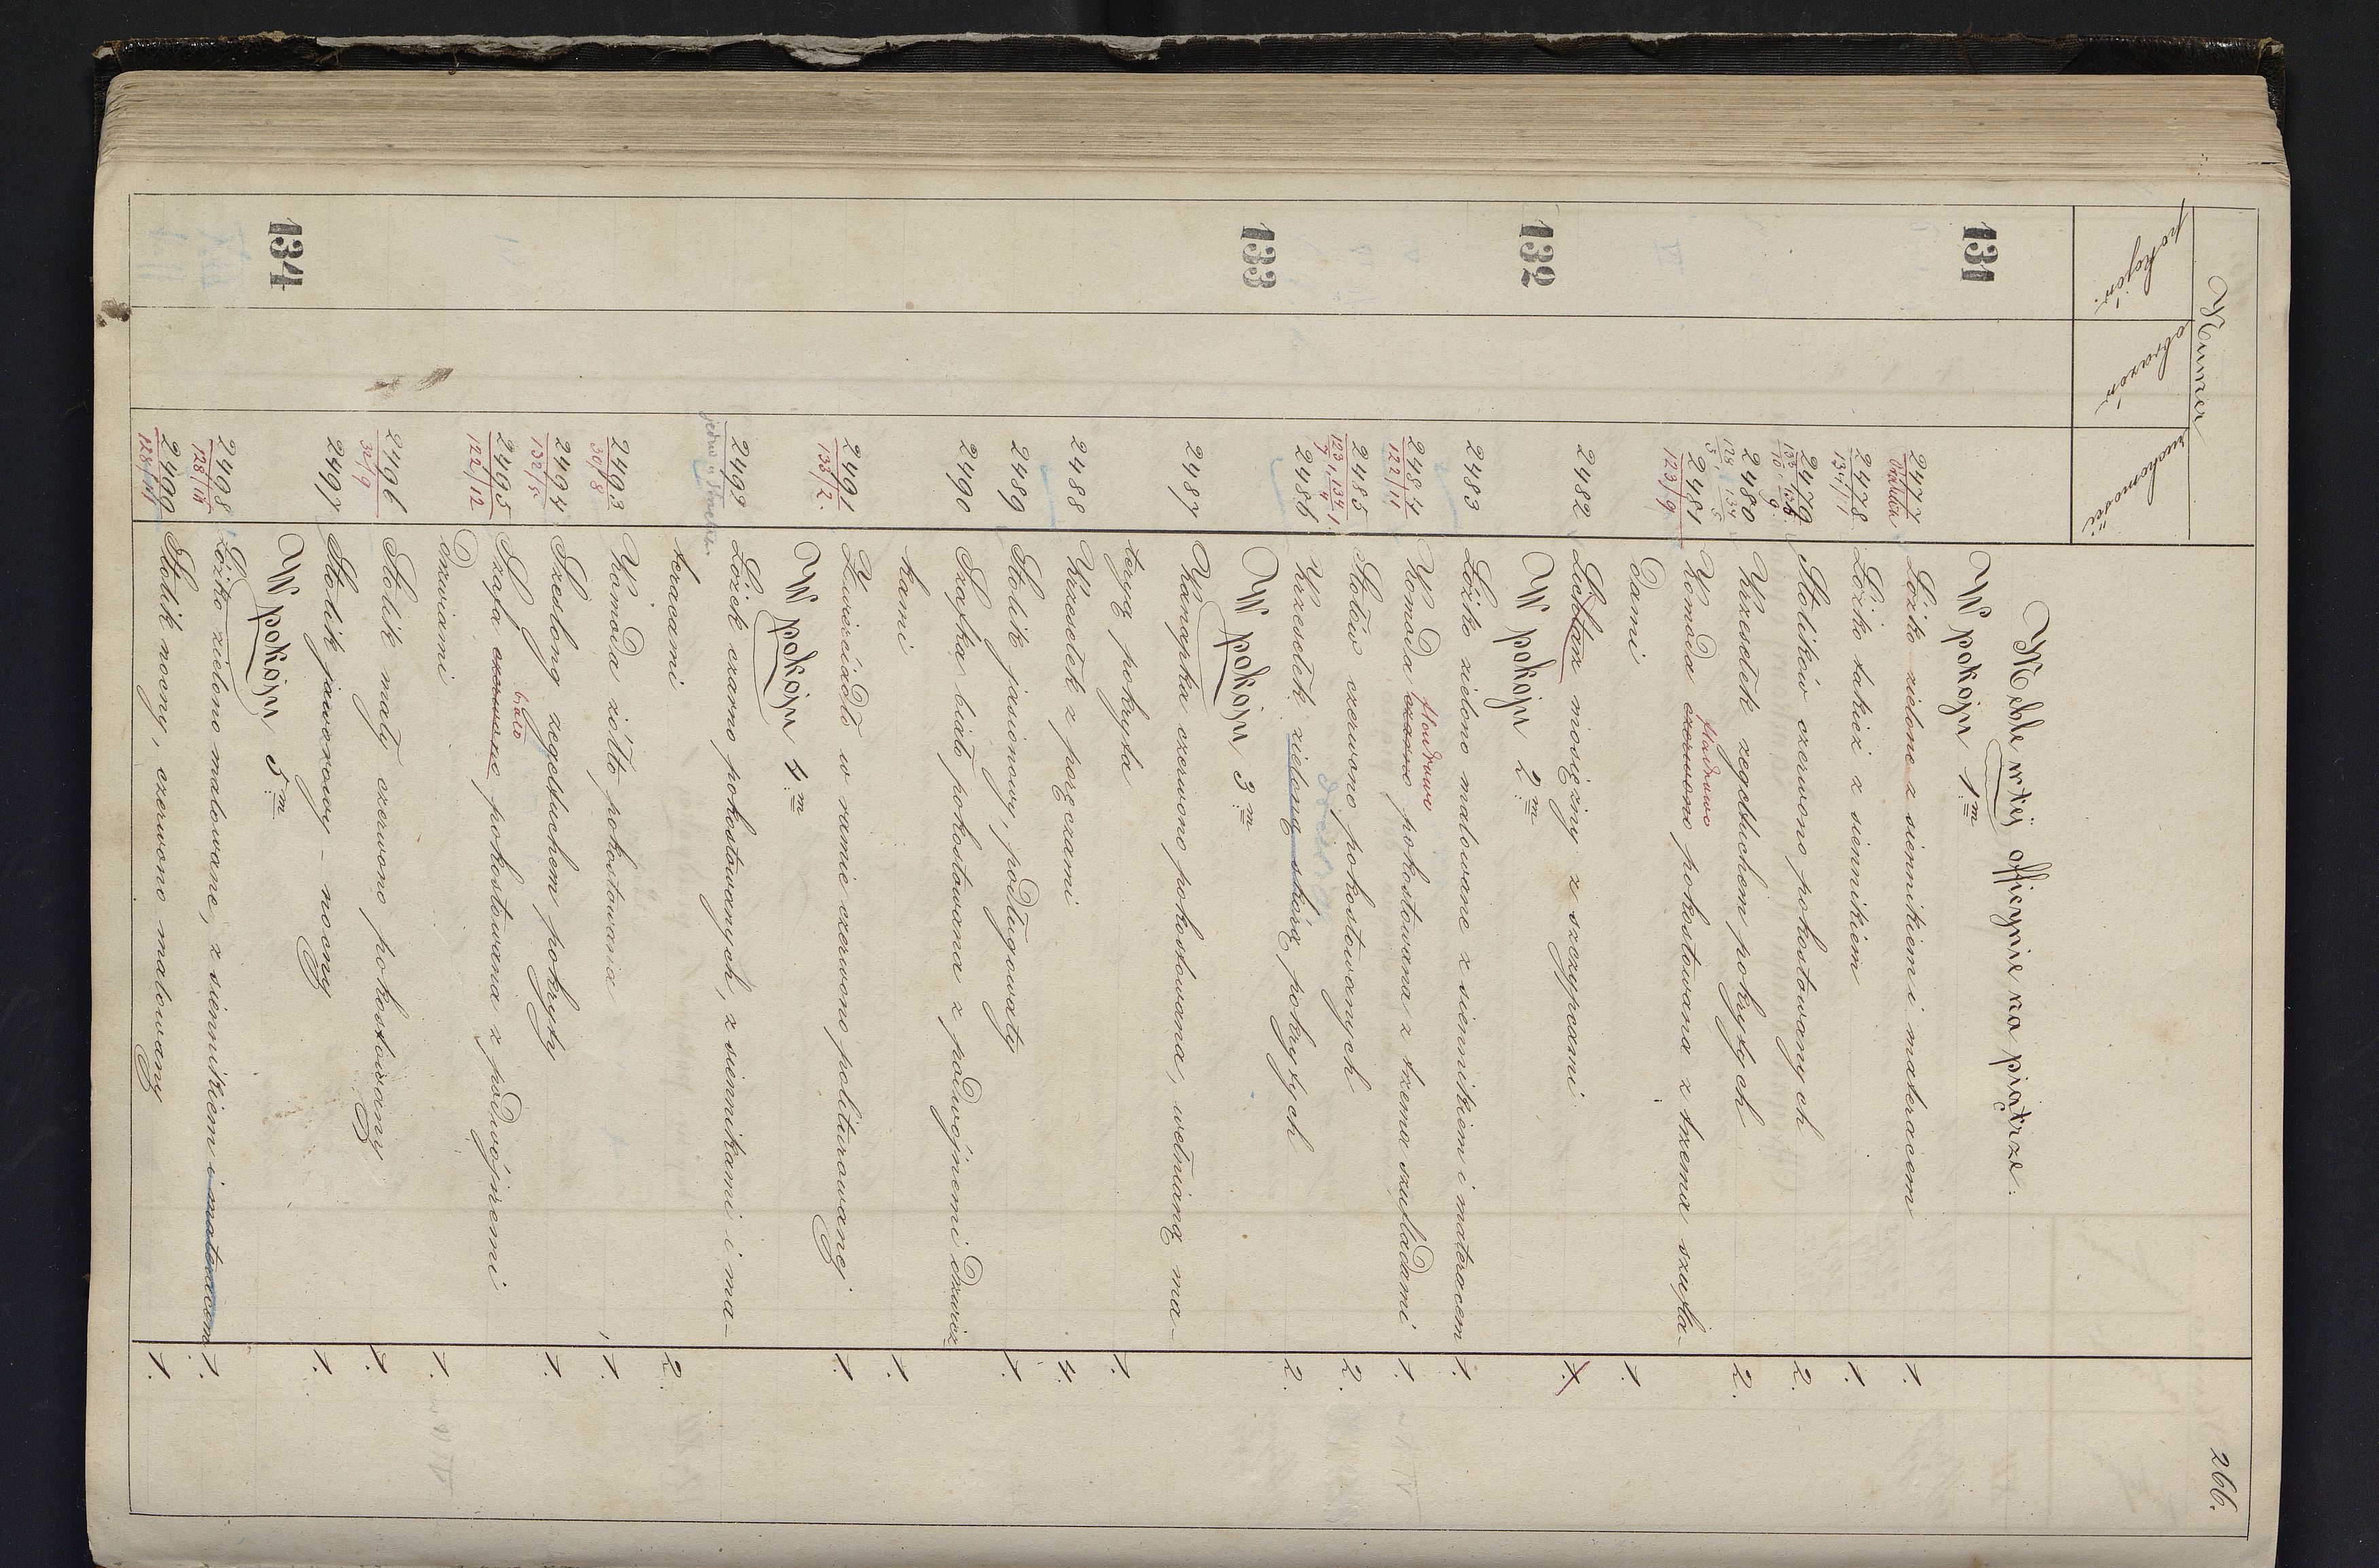 266.
Numer
pokojów. obrazów ruchomości
Meble w tej officynie na piątrze.
131 W pokoju 1m
2477 Łóżko zielone z siennikiem i materacem 1.
2478 Łóżko takież z siennikiem 1.
134/1
2479 Stolików czerwono pokostowanych 2.
2480 Krzesełek zegeltuchem pokrytych 2.
śladrowo
2481 Komoda czerwono pokostowana z trzema szufla-
123/9
dami 1.
2482 Lichtarz mosiężny z szczypcami 1.
132 W pokoju 2m
2483 Łóżko zielono malowane z siennikiem i materacem 1.
2484 Komoda czarno pokostowana z trzema szufladami 1.
122/11
2485 Stołów czerwono pokostowanych 2.
2486 Krzesełek zieloną skórą pokrytych 2.
133 W pokoju 3m
2487 Kanapka czerwono pokostowana, wełnianą ma-
teryą pokryta 1.
2488 Krzesełek z poręczami 4.
2489 Stolik jasionowy, podługowaty 1.
2490 Szafka biało pokostowana z podwójnemi drzwicz
kami 1.
2491 Zwierciadło w ramie czerwono politurowanej 1.
133/2.
W pokoju 4m
2492 Łóżek czarno pokostowanych, z siennikami i ma-
teracami 2.
2493 Komoda żółto pokostowana 1.
30/8
2494 Szeslong zegeltuchem pokryty 1.
132/5
biało
2495 Szafa czerwono pokostowana z podwójnemi
122/12
drzwiami 1.
2496 Stolik mały czerwono pokostowany 1.
32/9
2497 Stolik jaworowy - nocny 1.
134 W pokoju 5m
2498 Łóżko zielono malowane, z siennikiem i materacem 1.
2499 Stolik nocny, czerwono malowany 1.